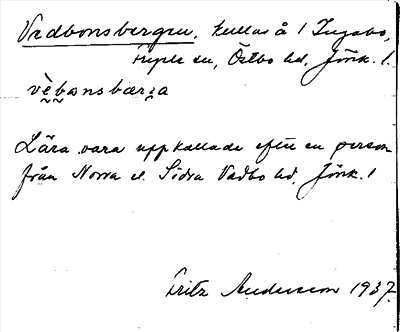 Vedbonsbergen, kullar å 1 Ingabo,
Rydaholms sn, Östbo hd, Jönk. l.
vè̬b̬ansbærga
Lära vara uppkallade efter en person
från Norra el. Södra Vedbo hd, Jönk. l
Fritz Andersson 1937.